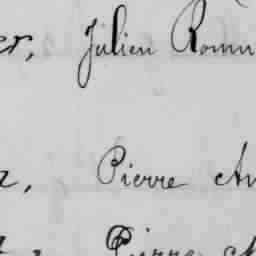 er, Julien Romu
, Pierre Au
Pierre